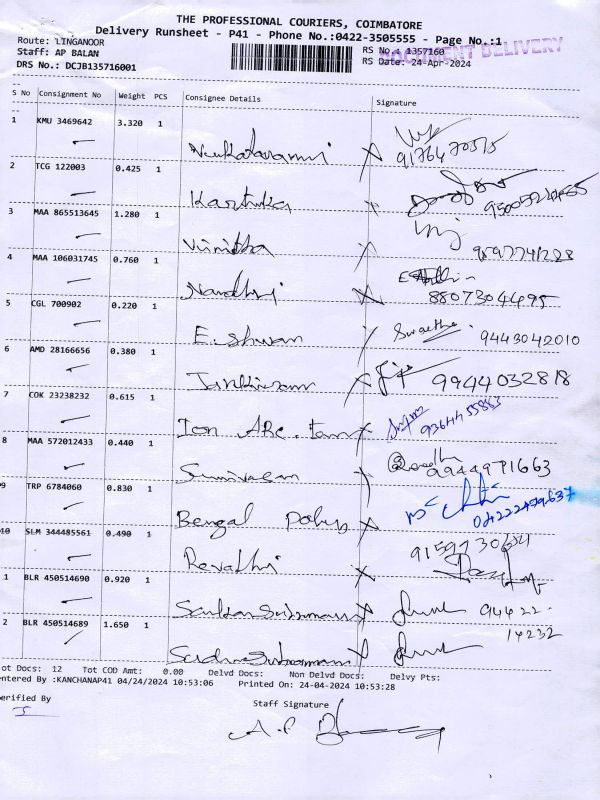 THE PROFESSIONAL COURIERS, COIMBATORE
Delivery Runsheet - P41 - Phone No.:0422-3505555 - Page No.:1
Route: LINGANOOR
Staff: AP BALAN
DRS No.: DCJB135716001
RS No.: 1357160
RS Date: 24-Apr-2024
DOCUMENT DELIVERY
S No Consignment No Weight PCS Consignee Details Signature
1 KMU 3469642 3.320 1
9176470515
2 TCG 122003 0.425 1
Karthika
3 MAA 865513645 1.280 1
Vinitha
9597741228
4 MAA 106031745 0.760 1
Nandhi
8807304495
5 CGL 700902 0.220 1
Eshwan Swaetha 9443042010
6 AMD 28166656 0.380 1
9944032818
7 COK 23238232 0.615 1
9364455883
8 MAA 572012433 0.440 1
9944971663
9 TRP 6784060 0.830 1
Bengal
04222479637
10 SLM 344485561 0.490 1
Revathi
1 BLR 450514690 0.920 1
94422
2 BLR 450514689 1.650 1
14232
ot Docs: 12 Tot COD Amt: 0.00 Delvd Docs: Non Delvd Docs: Delvy Pts:
ntered By :KANCHANAP41 04/24/2024 10:53:06 Printed On: 24-04-2024 10:53:28
erified By
Staff Signature